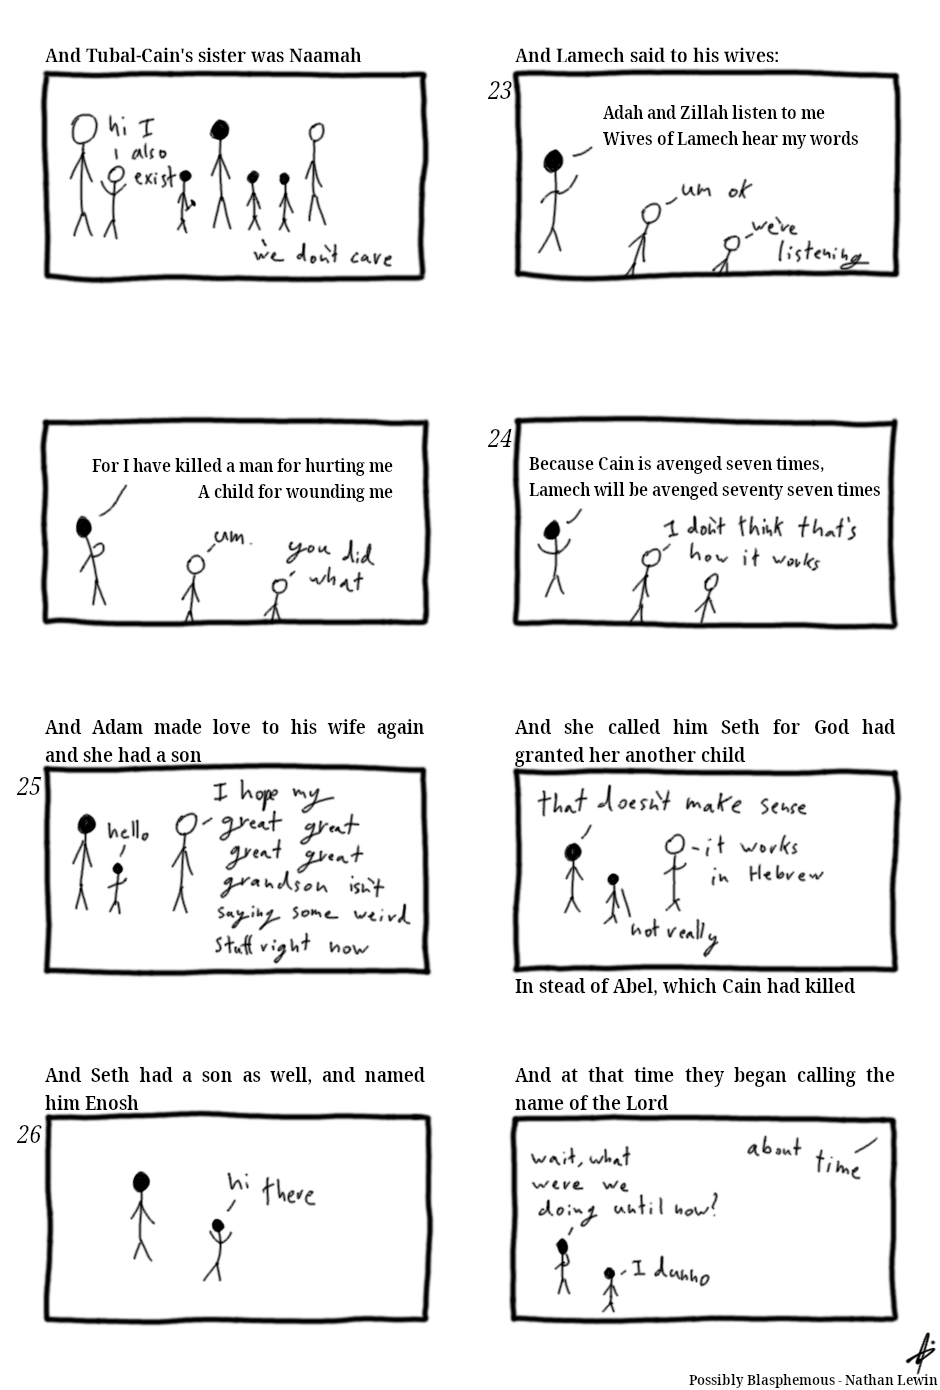 And Tubal-Cain's sister was Naamah
hi I
also
exist
we don't care
And Lamech said to his wives:
23
Adah and Zillah listen to me
Wives of Lamech hear my words
um ok
we're
listening
For I have killed a man for hurting me
A child for wounding me
um.
you did
what
24
Because Cain is avenged seven times,
Lamech will be avenged seventy seven times
I don't think that's
how it works
And Adam made love to his wife again
and she had a son
25
hello
I hope my
great great
great great
grandson isn't
saying some weird
stuff right now
And she called him Seth for God had
granted her another child
that doesn't make sense
it works
in Hebrew
not really
In stead of Abel, which Cain had killed
And Seth had a son as well, and named
him Enosh
26
hi there
And at that time they began calling the
name of the Lord
about
time
wait, what
were we
doing until now?
I dunno
Possibly Blasphemous - Nathan Lewin